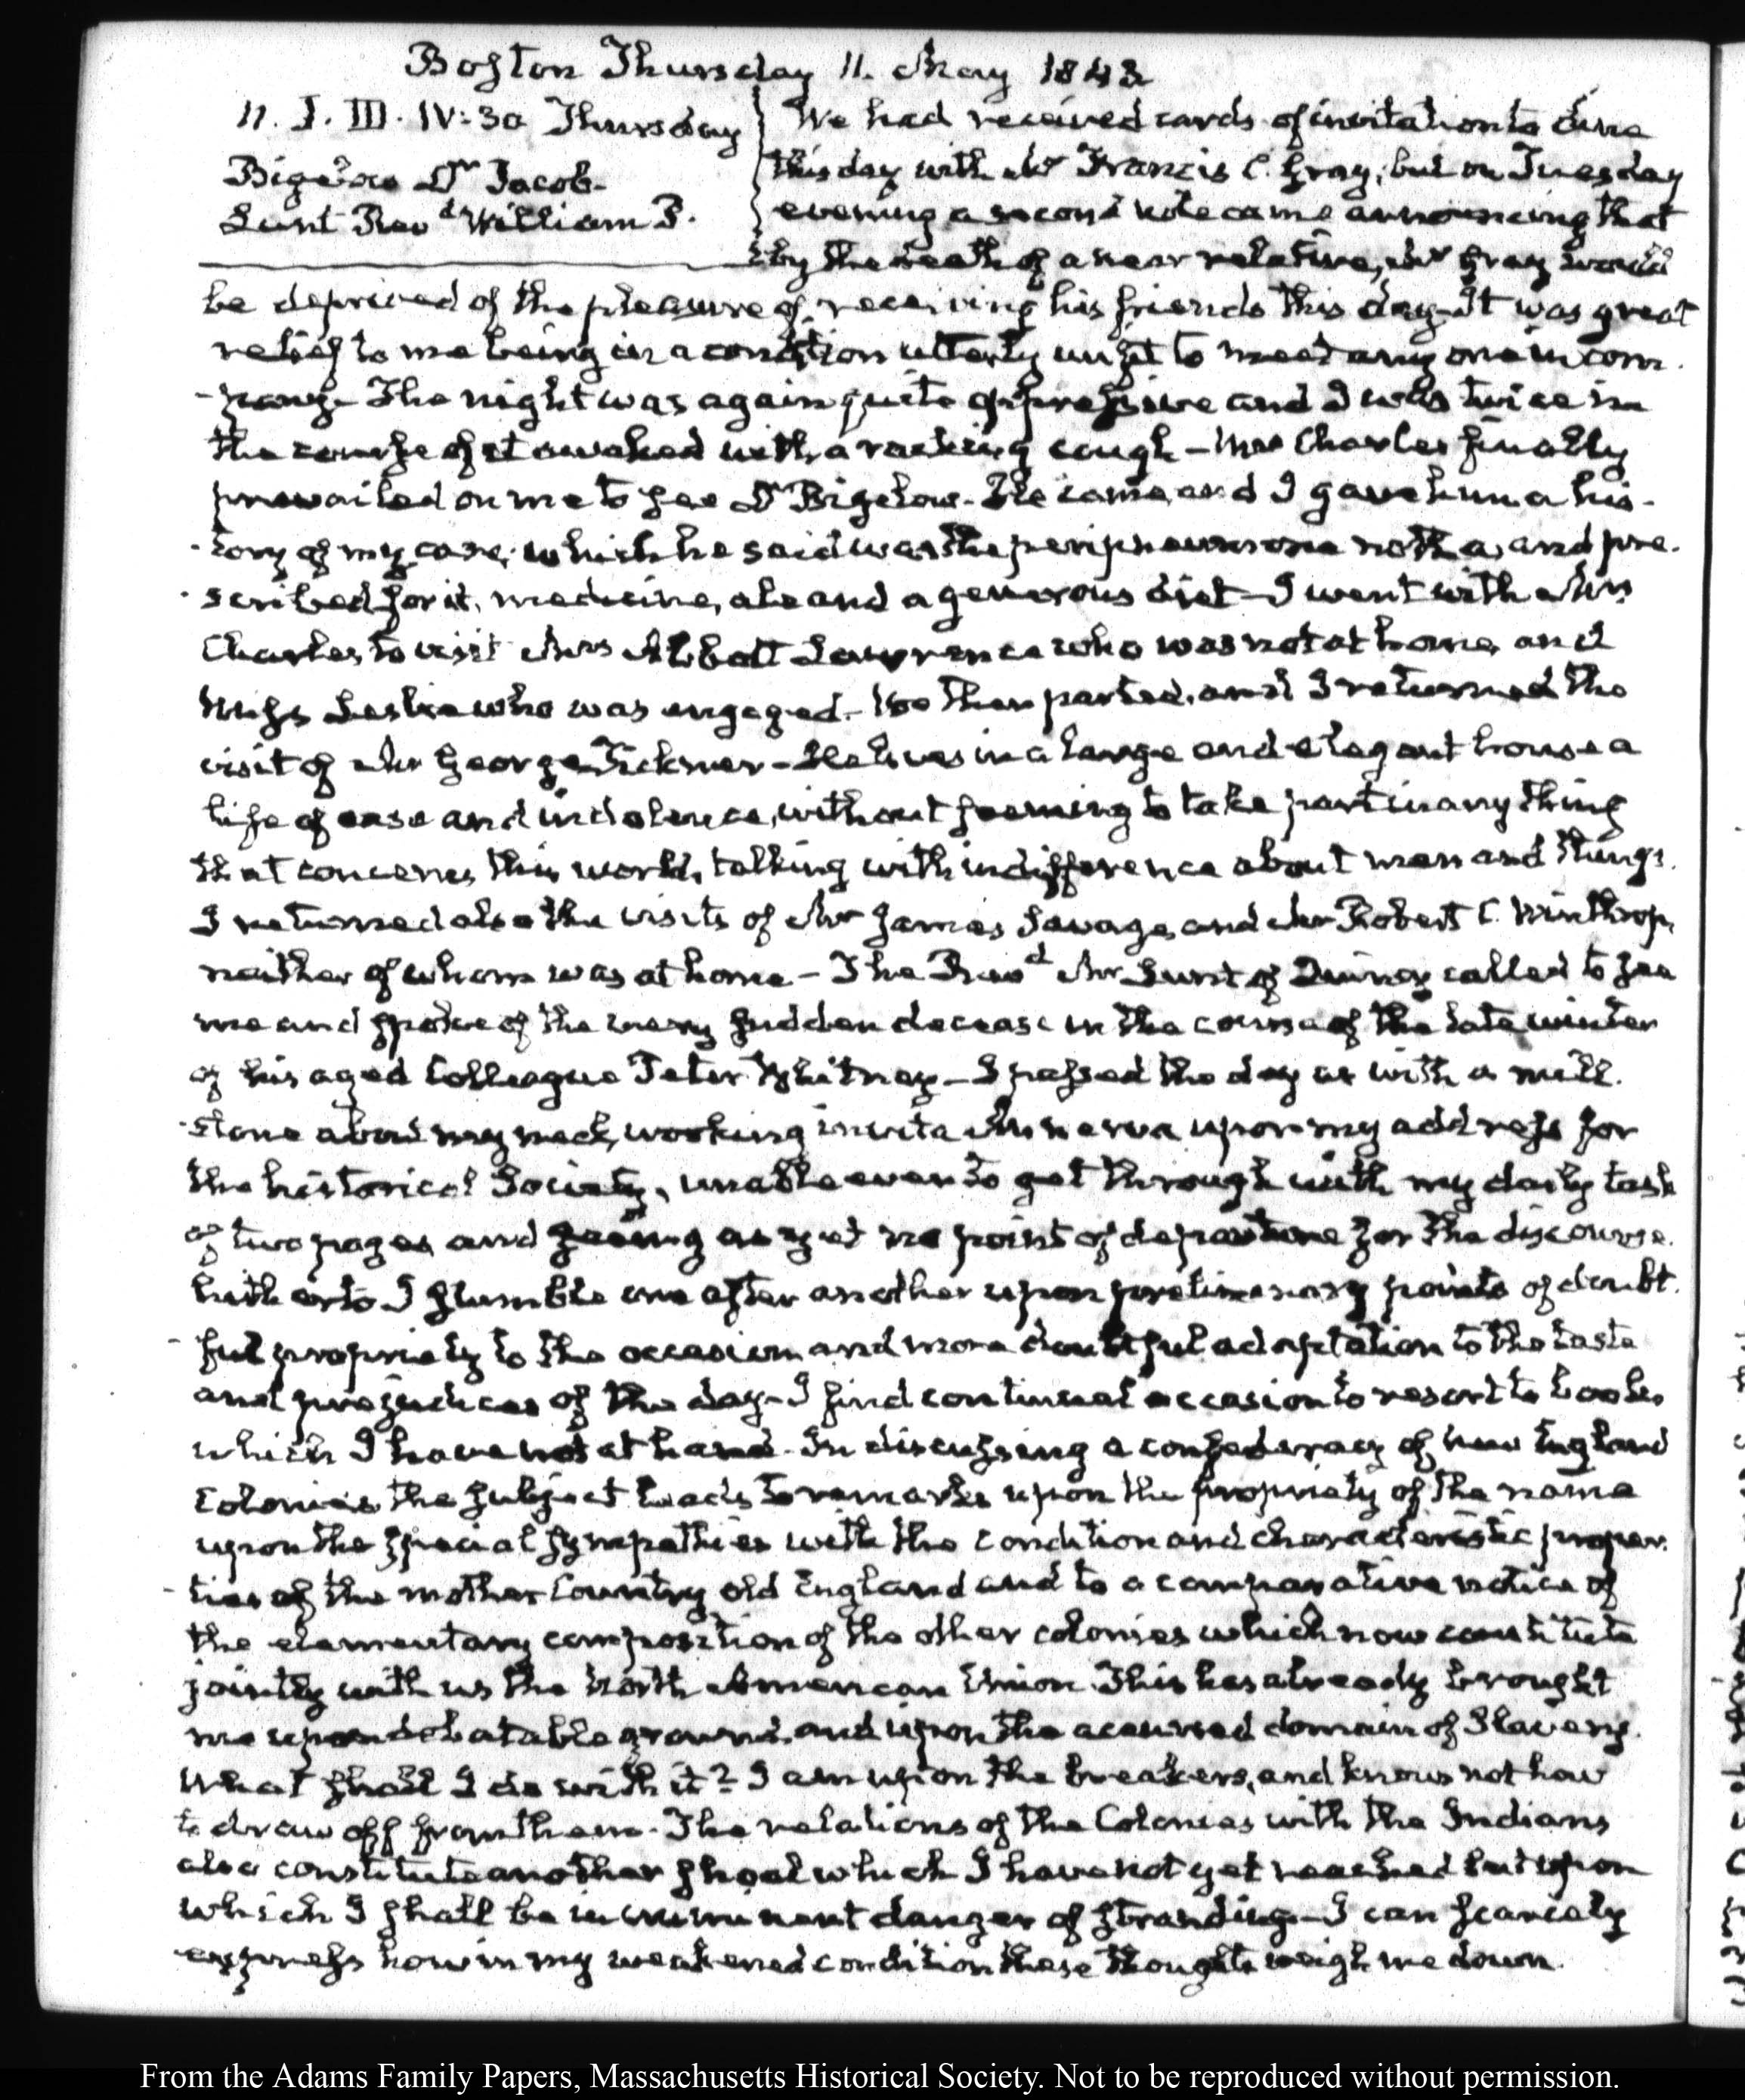 Boston Thursday 11. May 1843
11. I. III. IV:30 Thursday
Bigelow Dr Jacob
Lunt Revd William P.
We had received cards of invitation to dine
this day with Mr Francis C. Gray; but on Tuesday
evening a second note came announcing that
by the death of a near relative, Mr Gray would
be deprived of the pleasure of receiving his friends this day. It was great
relief to me being in a condition utterly unfit to meet any one in com-
-pany. The night was again quite oppressive and I was twice in
the course of it awaked with a racking cough - Mrs Charles finally
prevailed on me to see Dr Bigelow. He came, and I gave him a his-
-tory of my case; which he said was the peripneumonia notha, and pre-
-scribed for it, medicine, ale and a generous diet - I went with Mrs
Charles to visit Mrs Abbott Lawrence who was not at home, and
Miss Leslie who was engaged. We then parted, and I returned the
visit of Mr George Ticknor - He lives in a large and elegant house a
life of ease and indolence, without seeming to take part in any thing
that concerns this world, talking with indifference about men and things.
I returned also the visits of Mr James Savage, and Mr Robert C. Winthrop,
neither of whom was at home - The Revd Mr Lunt of Quincy called to see
me and spoke of the very sudden decease in the course of the late winter
of his aged Colleague Peter Whitney - I passed the day as with a mill-
-stone about my neck, working invita Minerva upon my address for
the historical Society, unable even to get through with my daily task
of two pages and seeing as yet no point of departure for the discourse.
hitherto I stumble one after another upon preliminary points of doubt-
-ful propriety to the occasion and more doubtful adaptation to the taste
and prejudices of the day - I find continual occasion to resort to books
which I have not at hand. In discussing a confederacy of New England
Colonies the subject leads to remarks upon the propriety of the name
upon the special sympathies with the condition and characteristic proper-
-ties of the mother Country old England and to a comparative notice of
the elementary composition of the other colonies which now constitute
jointly with us the North American Union. This has already brought
me upon debatable ground, and upon the accursed domain of Slavery.
What shall I do with it? I am upon the breakers, and know not how
to draw off from them. The relations of the Colonies with the Indians
also constitute another shoal which I have not yet reached but upon
which I shall be in imminent danger of stranding - I can scarcely
express how in my weakened condition these thoughts weigh me down.
From the Adams Family Papers, Massachusetts Historical Society. Not to be reproduced without permission.